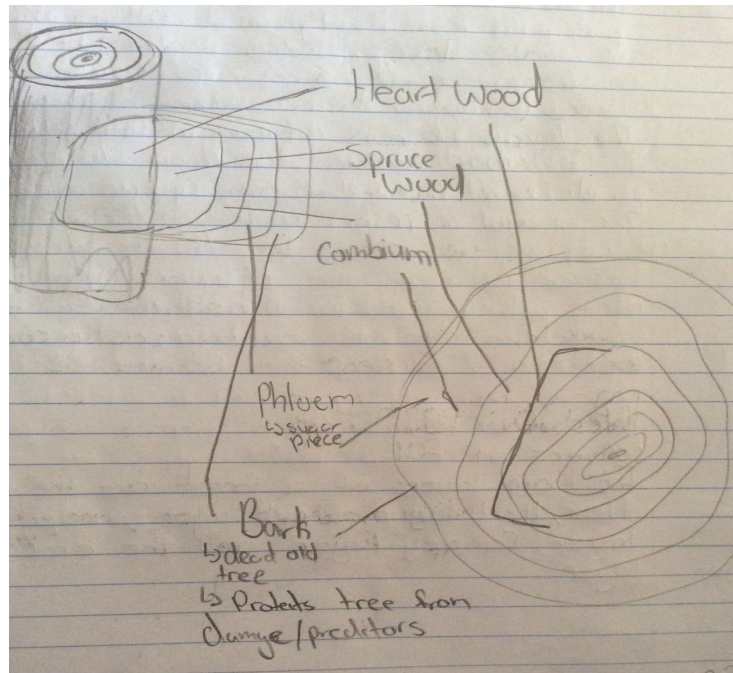 Heart Wood
Spruce
Wood
Cambium
Phloem
↳ sugar
piece
Bark
↳ dead old
tree
↳ Protects tree from
damge/preditors